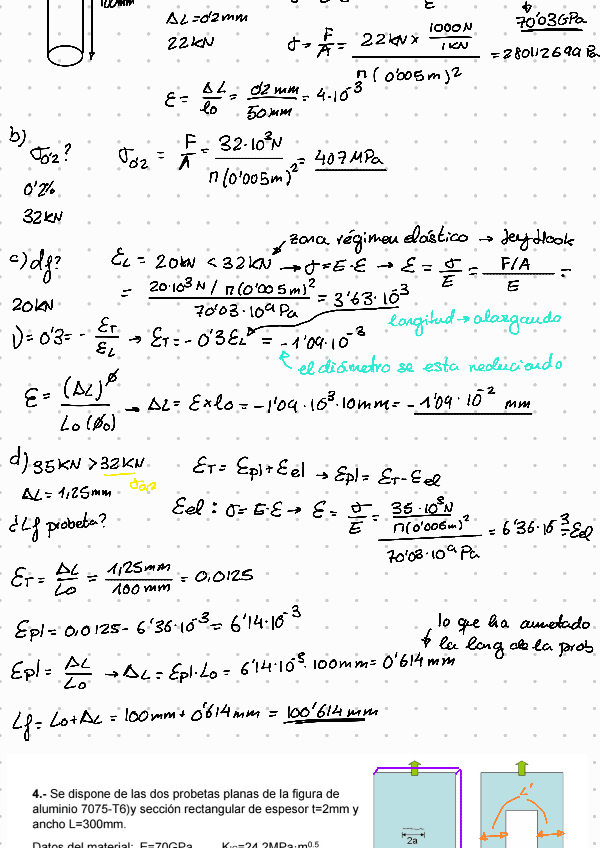 100mm
ΔL=0'2mm
22KN
E
70'03GPa
σ = F/A = 22KN × 1000N/1KN / π(0'005m)² = 280112699 Pa
ε = ΔL/l0 = 0'2mm/50mm = 4·10⁻³
b)
σ0'2? σ0'2 = F/A = 32·10³N / π(0'005m)² = 407 MPa
0'2%
32KN
zona régimen elástico → Ley Hook
c) df? εL = 20KN < 32KN → σ=E·ε → ε = σ/E = F/A / E =
20KN
= 20·10³N / π(0'005m)² / 70'03·10⁹Pa = 3'63·10⁻³
longitud → alargando
ν = 0'3 = - εT/εL → εT = -0'3εL = -1'09·10⁻³
el diámetro se esta reduciendo
ε = (ΔL)ø / L0(ø0) → ΔL = ε×l0 = -1'09·10⁻³·10mm = -1'09·10⁻² mm
d) 35KN > 32KN
σ0,2
εT = εpl + εel → εpl = εT - εel
ΔL = 1,25mm
¿Lf probeta?
εel : σ=E·ε → ε = σ/E = 35·10³N / π(0'005m)² / 70'03·10⁹Pa = 6'36·10⁻³ = εel
εT = ΔL/L0 = 1,25mm/100mm = 0,0125
εpl = 0,0125 - 6'36·10⁻³ = 6'14·10⁻³
lo que ha aumetado
la long de la prob
εpl = ΔL/L0 → ΔL = εpl·L0 = 6'14·10⁻³·100mm = 0'614mm
Lf = L0+ΔL = 100mm + 0'614mm = 100'614mm
4.- Se dispone de las dos probetas planas de la figura de
aluminio 7075-T6)y sección rectangular de espesor t=2mm y
ancho L=300mm.
Datos del material: E=70GPa K₁c=24,2MPa·m⁰·⁵
2a
L'